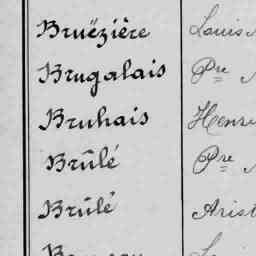 Bruëzière Louis
Brugalais Pre
Bruhais Henri
Brûlé Pre
Brûlé Arist